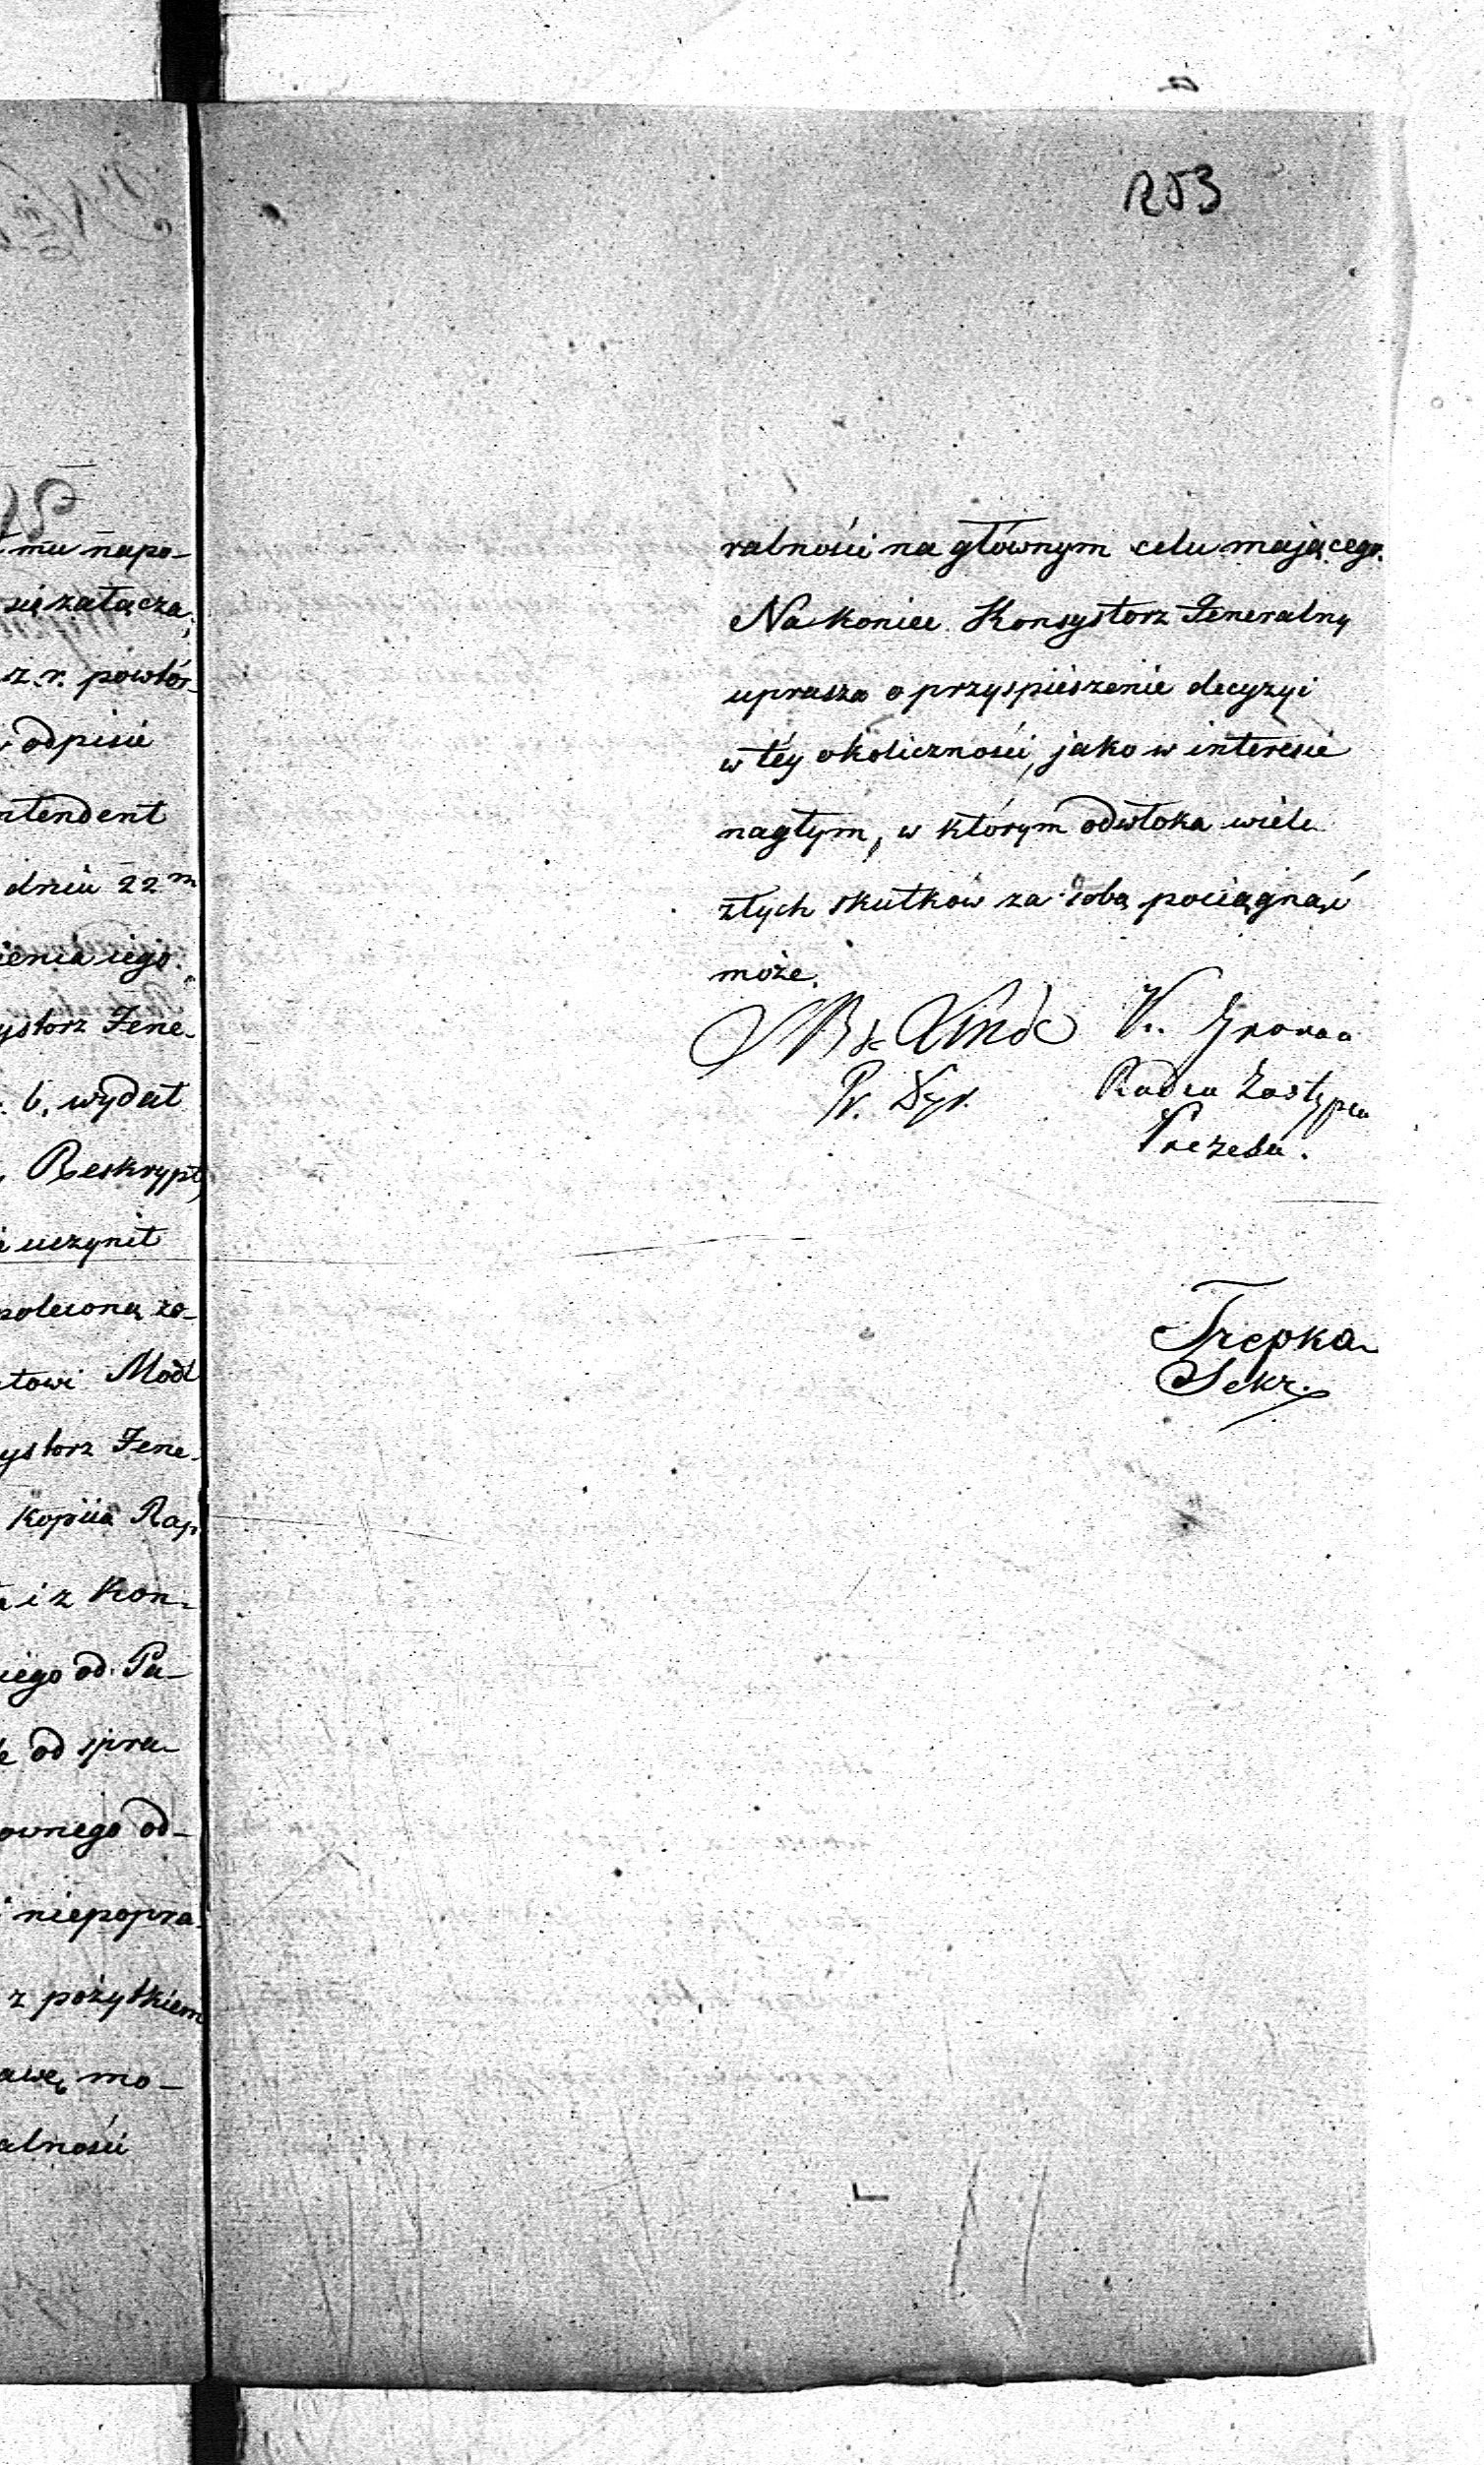 mu napo-
się załącza,
z. r. powtór-
odpisie
ntendent
dniu 22m
ienia iego.
ystorz Gene-
b, wydał
Reskrypt,
uczynił
poleconą zo-
towi Modl
ystorz Gene-
kopiia Rap
i z Kon-
iego od Pa-
od spra-
ownego od-
niepopra-
z pożytkiem
awę mo-
alności
253
ralności na głównym celu mającego.
Na koniec Konsystorz Generalny
uprasza o przyspieszenie decyzyi
w téy okoliczności, jako w interesie
nagłym, w którym odwłoka wiele
złych skutków za sobą pociągnąć
może.
Linde
Pr. Dyr.
Radca Zastępca
Prezesa.
Trepka
Sekr.